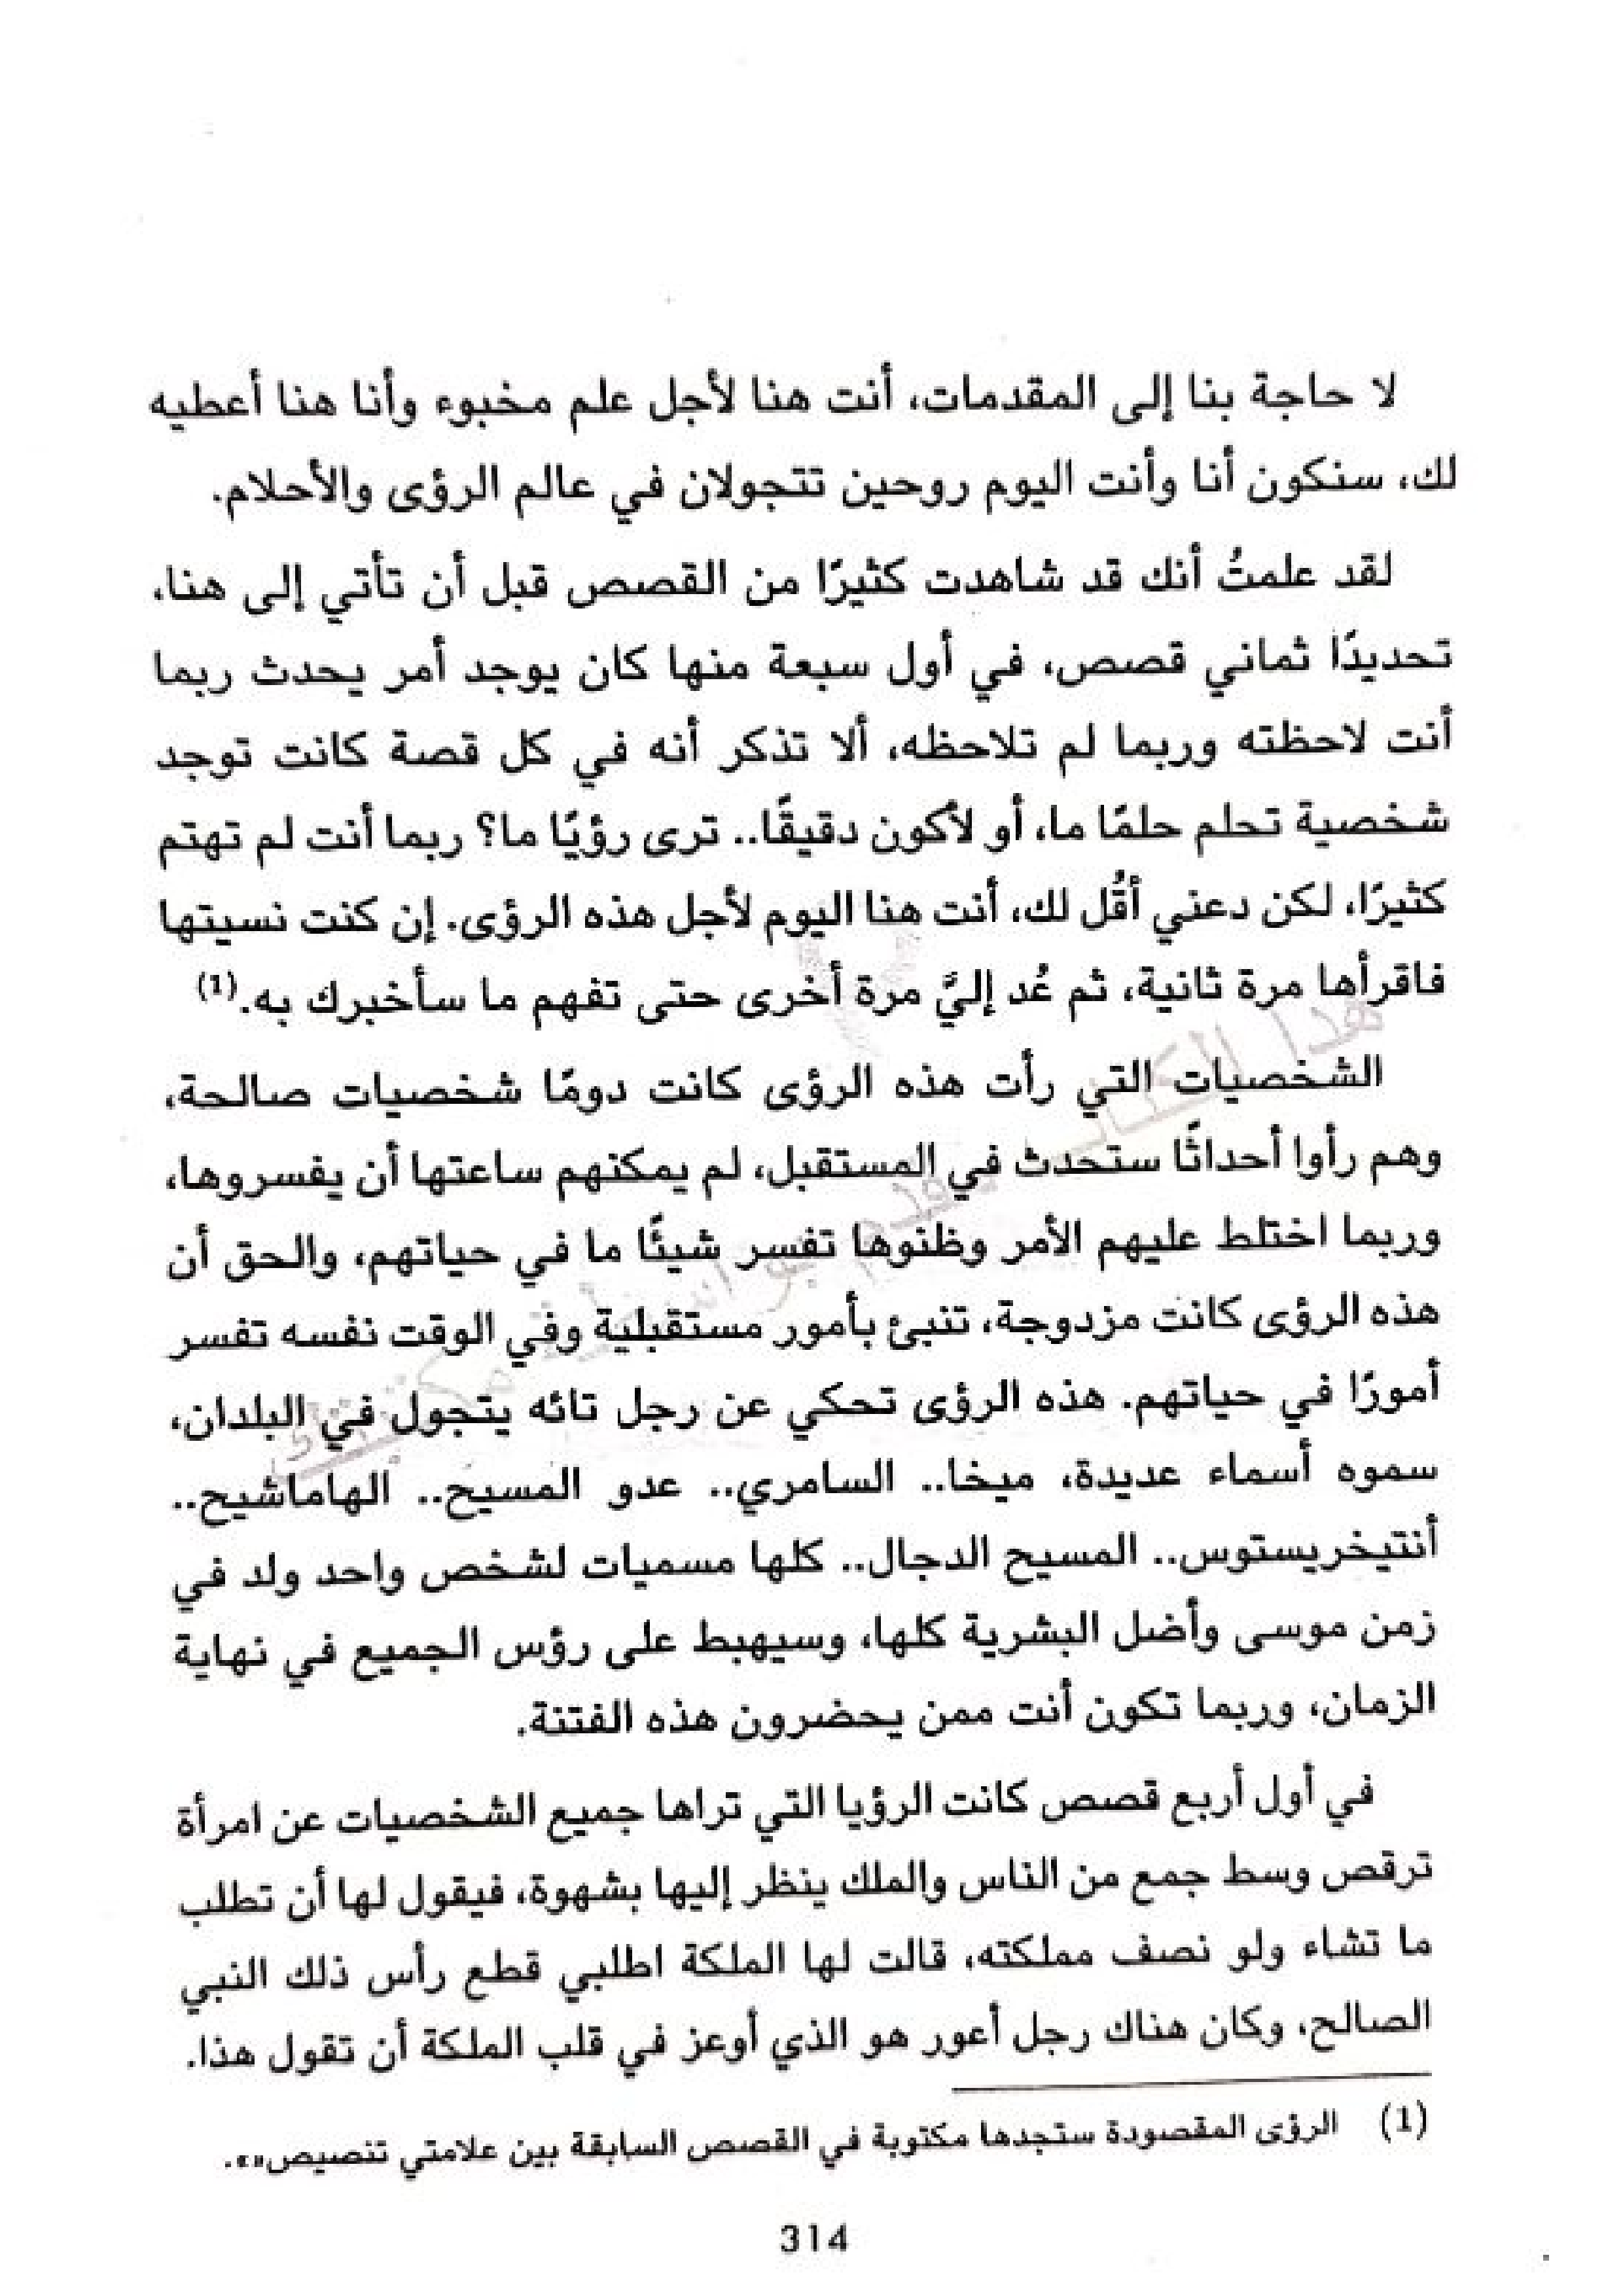 لا حاجة بنا إلى المقدمات، أنت هنا لأجل علم مخبوء وأنا هنا أعطيه
لك، سنكون أنا وأنت اليوم روحين تتجولان في عالم الرؤى والأحلام.
لقد علمتُ أنك قد شاهدت كثيرًا من القصص قبل أن تأتي إلى هنا،
تحديدًا ثماني قصص، في أول سبعة منها كان يوجد أمر يحدث ربما
أنت لاحظته وربما لم تلاحظه، ألا تذكر أنه في كل قصة كانت توجد
شخصية تحلم حلمًا ما، أو لأكون دقيقًا.. ترى رؤيًا ما؟ ربما أنت لم تهتم
كثيرًا، لكن دعني أقُل لك، أنت هنا اليوم لأجل هذه الرؤى. إن كنت نسيتها
فاقرأها مرة ثانية، ثم عُد إليَّ مرة أخرى حتى تفهم ما سأخبرك به.(1)
الشخصيات التي رأت هذه الرؤى كانت دومًا شخصيات صالحة،
وهم رأوا أحداثًا ستحدث في المستقبل، لم يمكنهم ساعتها أن يفسروها،
وربما اختلط عليهم الأمر وظنوها تفسر شيئًا ما في حياتهم، والحق أن
هذه الرؤى كانت مزدوجة، تنبئ بأمور مستقبلية وفي الوقت نفسه تفسر
أمورًا في حياتهم. هذه الرؤى تحكي عن رجل تائه يتجول في البلدان،
سموه أسماء عديدة، ميخا.. السامري.. عدو المسيح.. الهاماشيح..
أنتيخريستوس.. المسيح الدجال.. كلها مسميات لشخص واحد ولد في
زمن موسى وأضل البشرية كلها، وسيهبط على رؤس الجميع في نهاية
الزمان، وربما تكون أنت ممن يحضرون هذه الفتنة.
في أول أربع قصص كانت الرؤيا التي تراها جميع الشخصيات عن امرأة
ترقص وسط جمع من الناس والملك ينظر إليها بشهوة، فيقول لها أن تطلب
ما تشاء ولو نصف مملكته، قالت لها الملكة اطلبي قطع رأس ذلك النبي
الصالح، وكان هناك رجل أعور هو الذي أوعز في قلب الملكة أن تقول هذا.
(1) الرؤى المقصودة ستجدها مكتوبة في القصص السابقة بين علامتي تنصيص"".
314